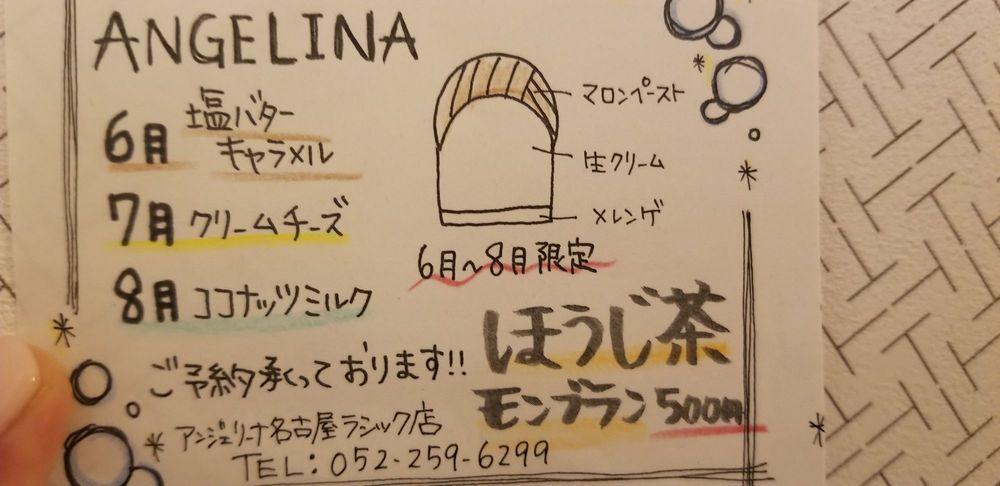 ANGELINA
6月 塩バター
キャラメル
7月 クリームチーズ
8月 ココナッツミルク
マロンペースト
生クリーム
メレンゲ
6月~8月限定
ほうじ茶
モンブラン 500円
ご予約承っております!!
アンジェリーナ名古屋ラシック店
TEL:052-259-6299